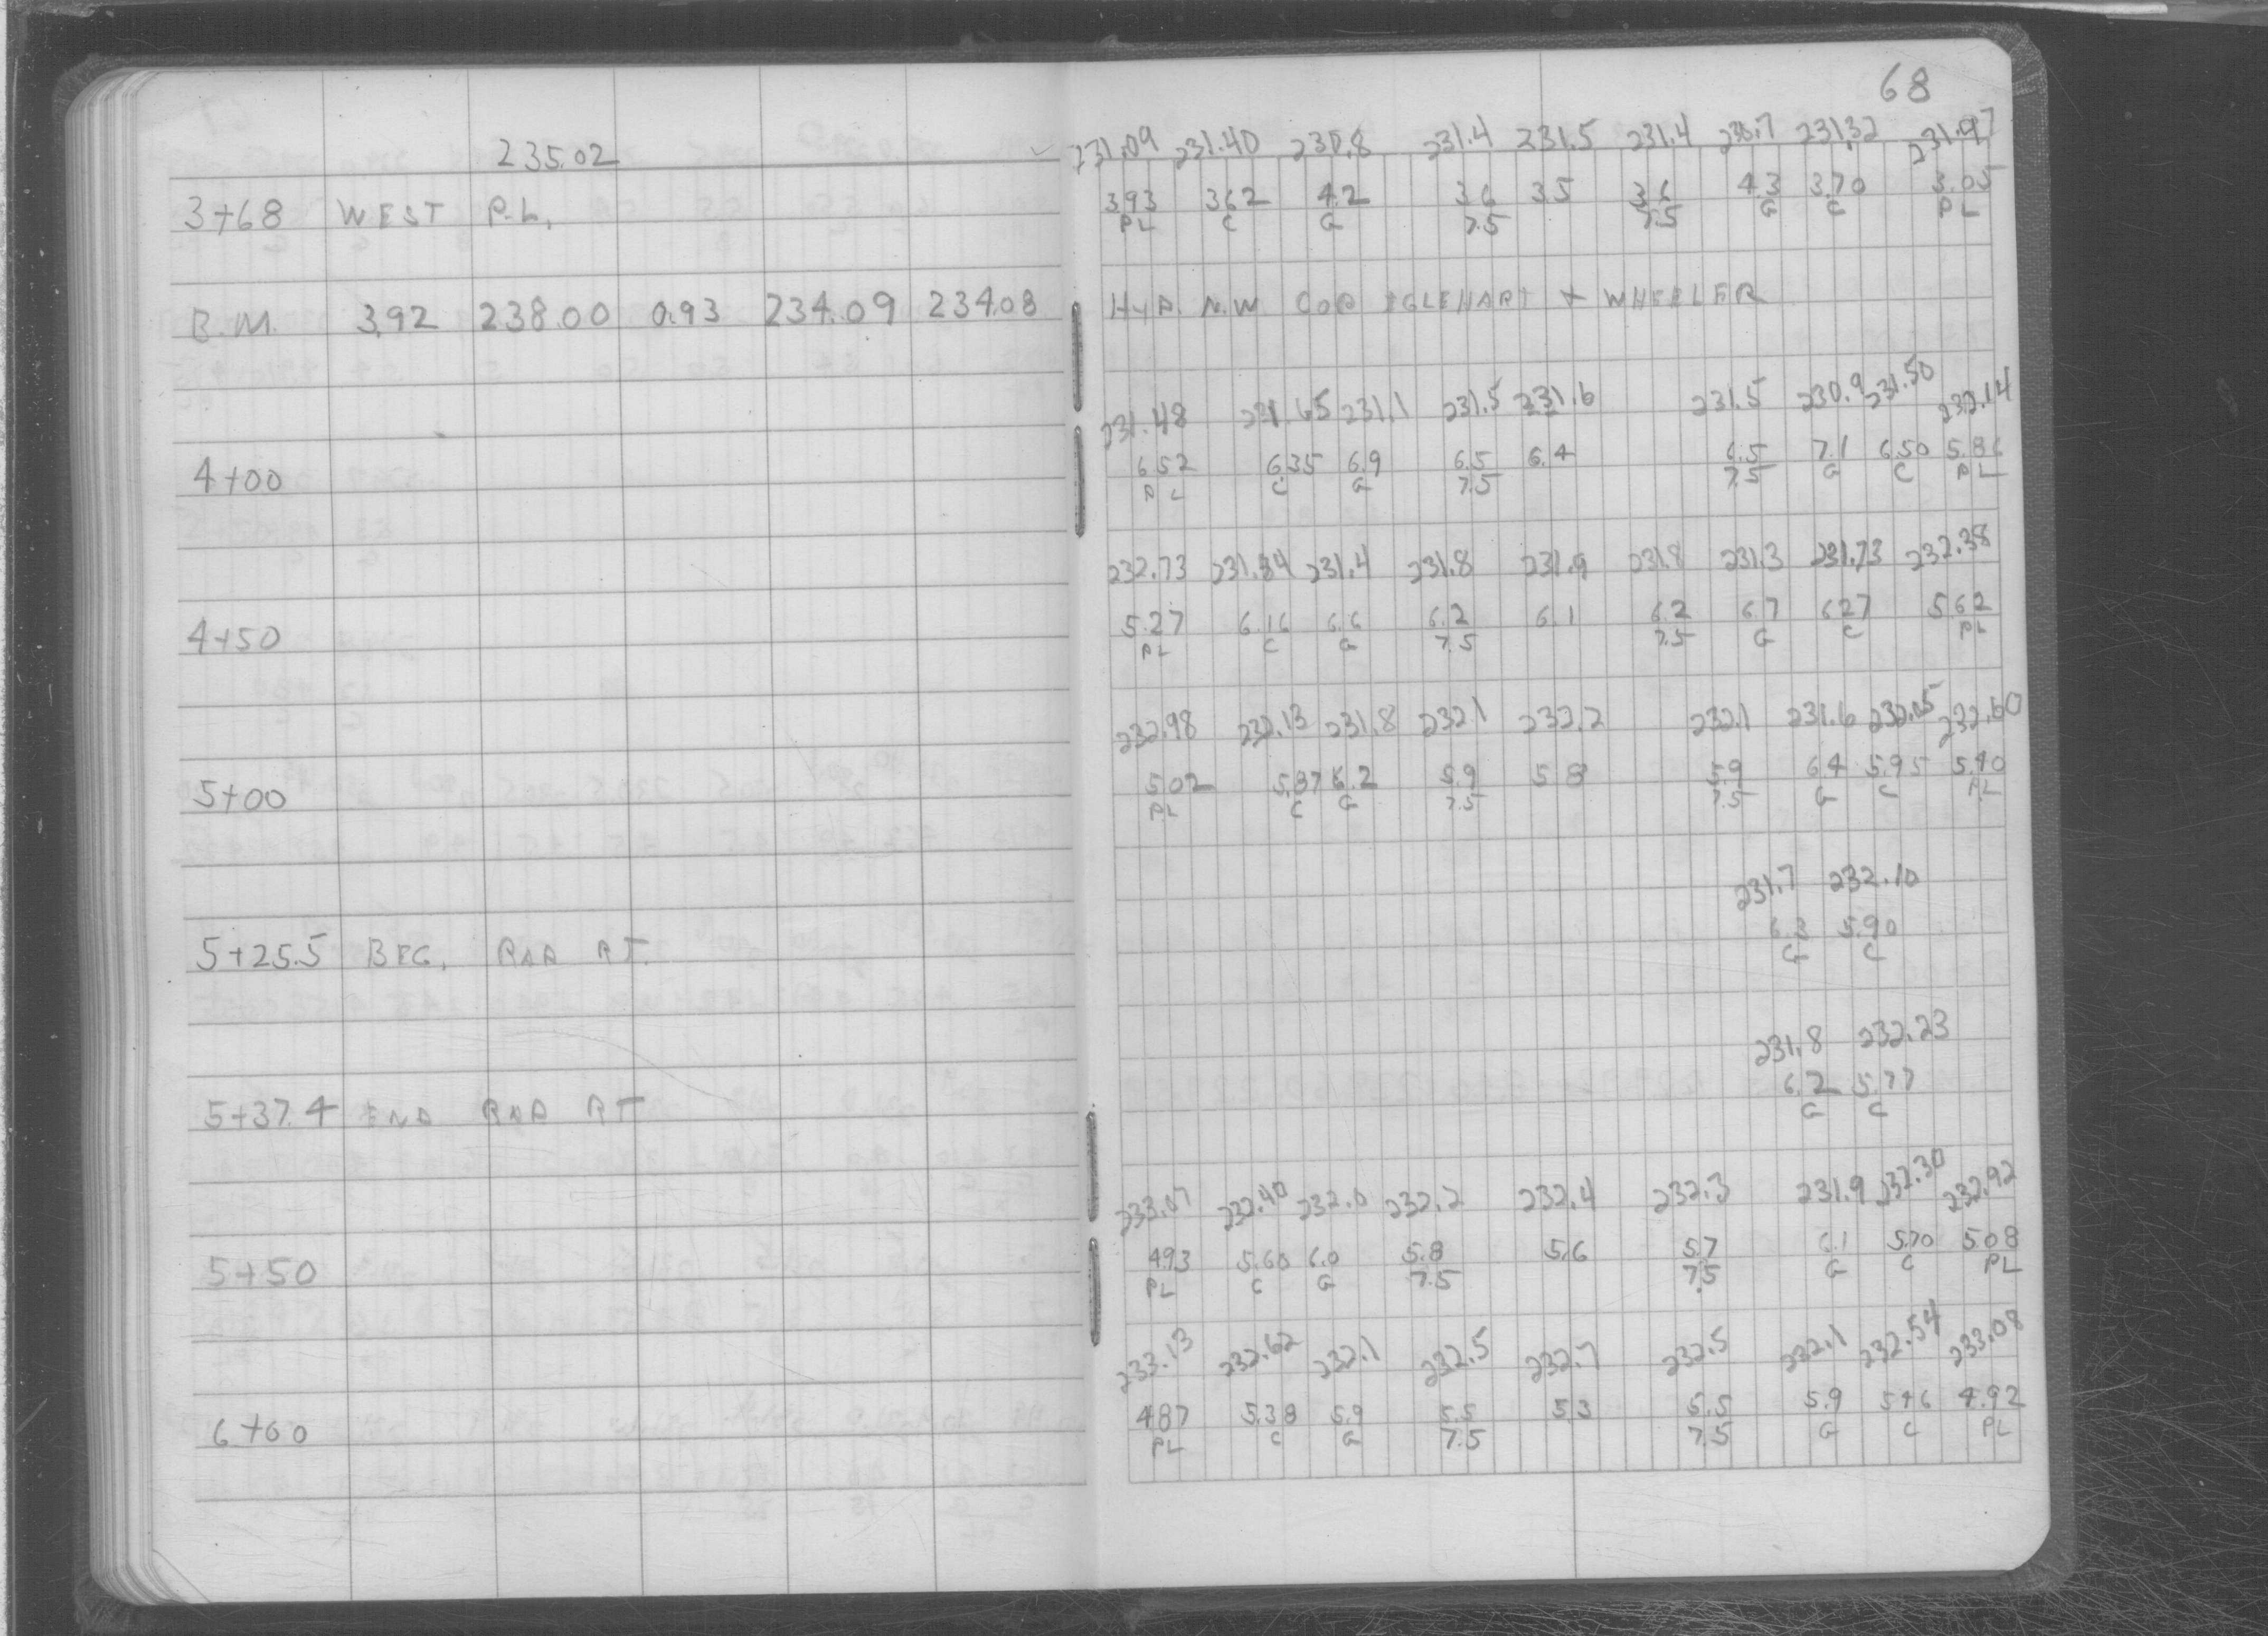 68
235.02 231.09 231.40 230.8 231.4 231.5 231.4 230.7 231.32 231.97
3+68 WEST P.L. 3.93 3.62 4.2 3.6 3.5 3.6 4.3 3.70 3.05
PL C G 7.5 7.5 G C PL
B.M. 3.92 238.00 0.93 234.09 234.08 HYD. N.W. COR IGLEHART + WHEELER
231.48 231.65 231.1 231.5 231.6 231.5 230.9 231.50 232.14
4+00 6.52 6.35 6.9 6.5 6.4 6.5 7.1 6.50 5.86
PL C G 7.5 7.5 G C PL
232.73 231.84 231.4 231.8 231.9 231.8 231.3 231.73 232.38
4+50 5.27 6.16 6.6 6.2 6.1 6.2 6.7 6.27 5.62
PL C G 7.5 7.5 G C PL
232.98 232.13 231.8 232.1 232.2 232.1 231.6 232.05 232.60
5+00 5.02 5.87 6.2 5.9 5.8 5.9 6.4 5.95 5.40
PL C G 7.5 7.5 G C PL
231.7 232.10
5+25.5 BEG. RAD RT. 6.3 5.90
G C
231.8 232.23
5+37.4 END RAD RT 6.2 5.77
G C
233.07 232.40 232.0 232.2 232.4 232.3 231.9 232.30 232.92
5+50 4.93 5.60 6.0 5.8 5.6 5.7 6.1 5.70 5.08
PL C G 7.5 7.5 G C PL
233.13 232.62 232.1 232.5 232.7 232.5 232.1 232.54 233.08
6+00 4.87 5.38 5.9 5.5 5.3 5.5 5.9 5.46 4.92
PL C G 7.5 7.5 G C PL